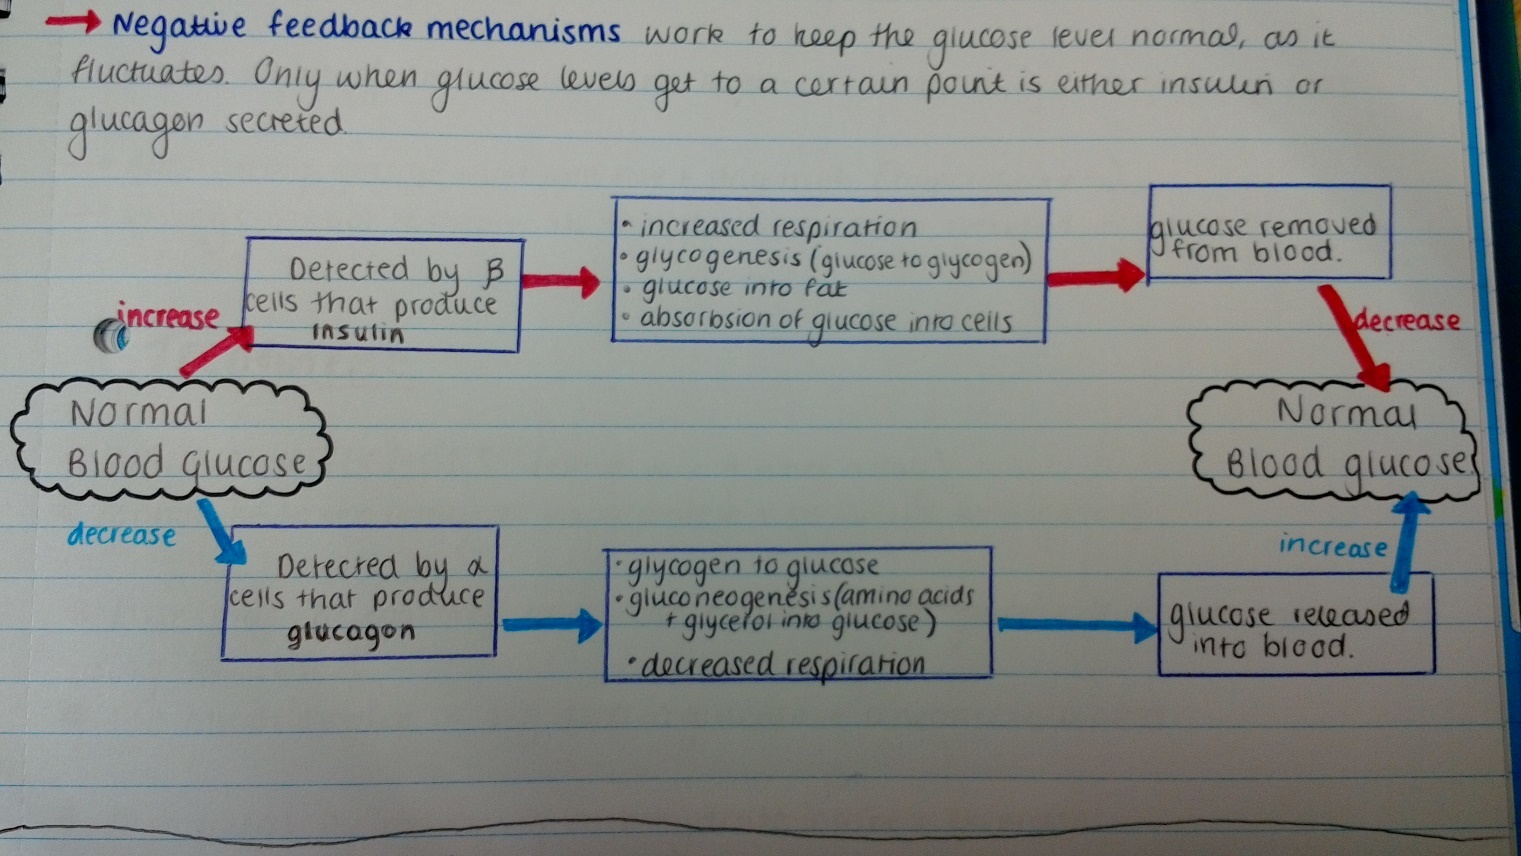 → Negative feedback mechanisms work to keep the glucose level normal, as it
fluctuates. Only when glucose levels get to a certain point is either insulin or
glucagon secreted.
increase
Detected by β
cells that produce
insulin
• increased respiration
• glycogenesis (glucose to glycogen)
• glucose into fat
• absorbsion of glucose into cells
glucose removed
from blood.
decrease
Normal
Blood Glucose
Normal
Blood glucose
decrease
Detected by α
cells that produce
glucagon
• glycogen to glucose
• gluconeogenesis (amino acids
+ glycerol into glucose)
• decreased respiration
glucose released
into blood.
increase